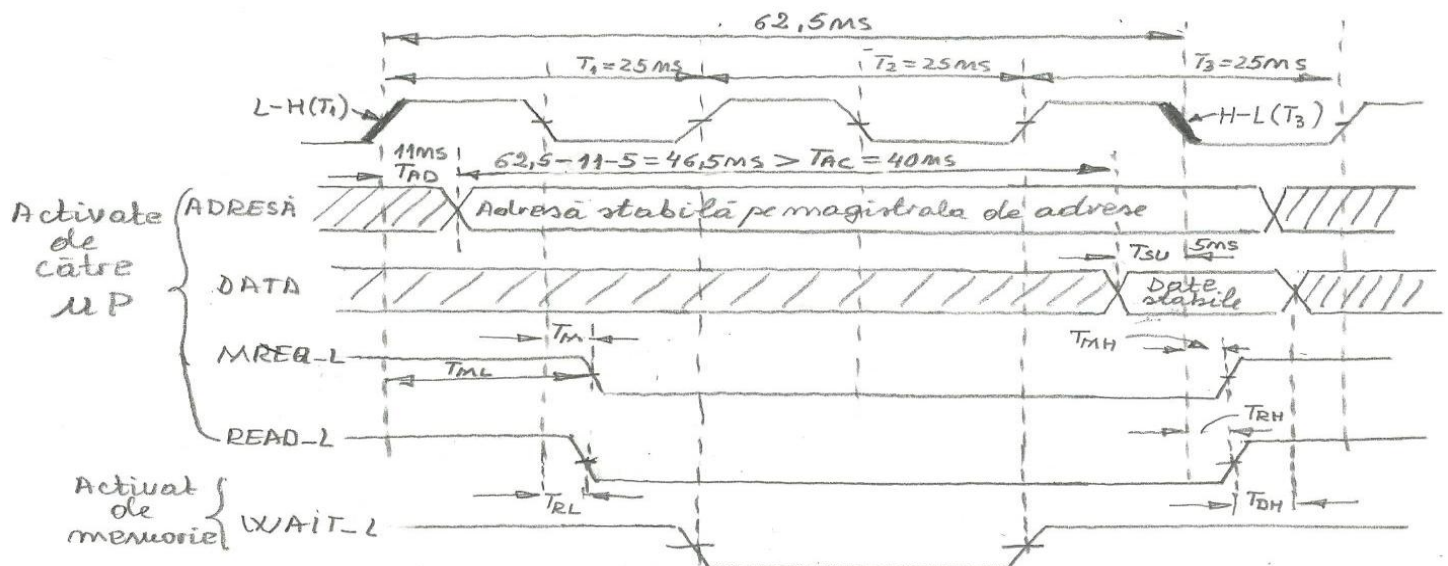 62,5ms
T1=25ms
T2=25ms
T3=25ms
L-H(T1)
H-L(T3)
11ms
TAD
62,5-11-5=46,5ms > TAC=40ms
Activate
de
către
μP
ADRESĂ
Adresă stabilă pe magistrala de adrese
TSU
5ms
DATA
Date
stabile
MREQ_L
TM
TML
TMH
READ_L
TRH
TRL
TDH
Activat
de
memorie
WAIT_L